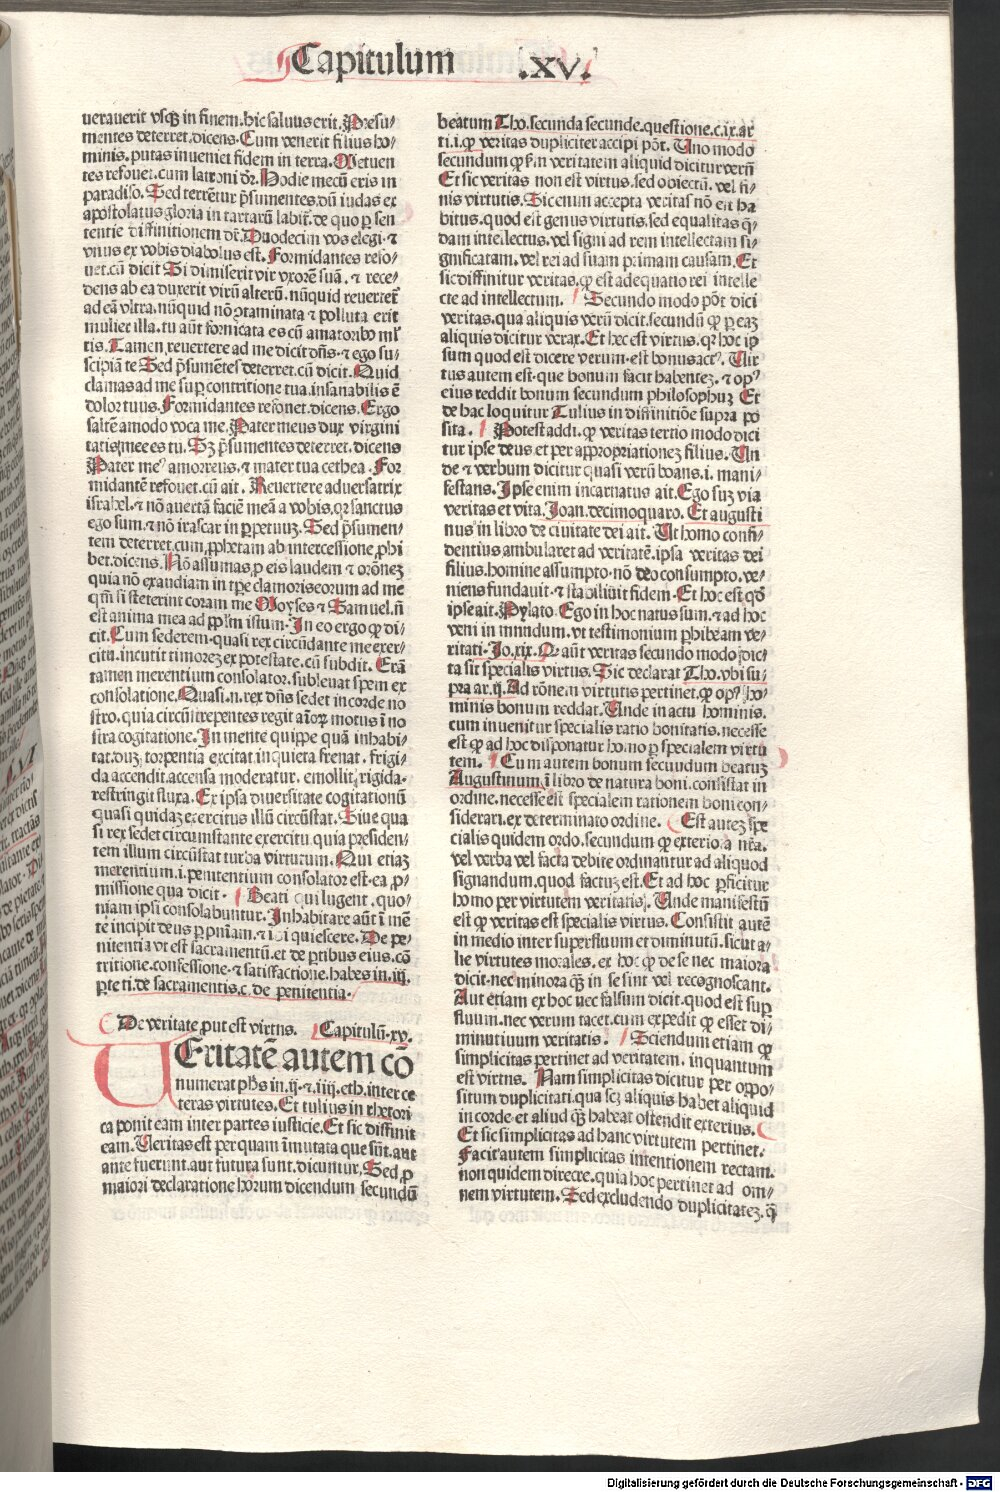 Capitulum .XV.
uerauerit vsqꝫ in finem. hic saluus erit. Presu-
mentes deterret. dicens. Cum venerit filius ho-
minis. putas inueniet fidem in terra. Metuen
tes refouet. cum latroni dr̄. Hodie mecū eris in
paradiso. Sed terrētur p̄sumentes. dū iudas ex
apostolatus gloria in tartarū labit᷑. de quo per sen
tentie diffinitionem dr̄. Duodecim vos elegi. ⁊
vnus ex vobis diabolus est. Formidantes refo-
uet. cū dicit Si dimiserit vir vxorē suā. ⁊ rece-
dens ab ea duxerit virū alterū. nūquid reuertet᷑
ad eā vltra. nūquid nō ꝯtaminata ⁊ polluta erit
mulier illa. tu aūt fornicata es cū amatoribꝰ ml̄
tis. Tamen reuertere ad me dicit dn̄s. ⁊ ego su-
scipiā te Sed p̄sumētes deterret. cū dicit. Quid
clamas ad me super contritione tua. insanabilis ē
dolor tuus. Formidantes refouet. dicens. Ergo
saltē amodo voca me. Pater meus dux virgini
tatis mee es tu. Sꝫ p̄sumentes deterret. dicens
Pater meꝰ amorreus. ⁊ mater tua cethea. For
midantē refouet. cū ait. Reuertere aduersatrix
israhel. ⁊ nō auertā faciē meā a vobis. qꝛ sanctus
ego sum. ⁊ nō irascar in perpetuuꝫ. Sed p̄sumen-
tem deterret. cum ꝓphetam ab intercessione ꝓhi
bet. dicens. Nō assumas ꝓ eis laudem ⁊ orōneꝫ
quia nō exaudiam in tp̄e clamoris eorum ad me
qm̄ si steterint coram me Moyses ⁊ Samuel. n̄
est anima mea ad pp̄lm istum. In eo ergo ꝙ di-
cit. Cum sederem. quasi rex circūdante me exer-
citu. incutit timoreꝫ ex potestate. cū subdit. Erā
tamen merentium consolator. subleuat spem ex
consolatione. Quasi. n. rex dn̄s sedet in corde no
stro. quia circūstrepentes regit aīoꝝ motus ī no
stra cogitatione. In mente quippe quā inhabi-
tat. duꝫ torpentia excitat. inquieta frenat. frigi-
da accendit. accensa moderatur. emollit rigida.
restringit fluxa. Ex ipsa diuersitate cogitationū
quasi quidaꝫ exercitus illū circūstat. Siue qua
si rex sedet circumstante exercitu. quia presiden-
tem illum circūstat turba virtutum. Qui etiaꝫ
merentium. i. penitentium consolator est. ea ꝓ-
missione qua dicit. Beati qui lugent. quo-
niam ipsi consolabuntur. Inhabitare aūt ī mē
te incipit deus per pn̄iam. ⁊ ibi quiescere. De pe-
nitentia vt est sacramentū. et de ꝑtibus eius. cō
tritione. confessione. ⁊ satisfactione. habes in. iij.
ꝑte ti. de sacramentis. c. de penitentia.
De veritate ꝓut est virtus. Capitulū. xv.
VEritatē autem cō
numerat phs in. ij. ⁊. iiij. eth. inter ce
teras virtutes. Et tulius in rhetori
ca ponit eam inter partes iusticie. Et sic diffinit
eam. Veritas est per quam īmutata que sūt. aut
ante fuerunt. aut futura sunt. dicuntur. Sed ꝓ
maiori declaratione horum dicendum secundū
beatum Tho. secunda secunde. questione. c. ix. ar
ti. i. ꝙ veritas dupliciter accipi pōt. Uno modo
secundum ꝙ ẜm veritatem aliquid dicitur verū
Et sic veritas non est virtus. sed obiectū. vel fi-
nis virtutis. Sic enim accepta veritas nō est ha
bitus. quod est genus virtutis. sed equalitas q̄-
dam intellectus. vel signi ad rem intellectam si-
gnificatam. vel rei ad suam primam causam. Et
sic diffinitur veritas. ꝙ est adequatio rei intelle
cte ad intellectum. Secundo modo pōt dici
veritas. qua aliquis verū dicit. secundū ꝙ per eaꝫ
aliquis dicitur verax. Et hec est virtus. qꝛ hoc ip
sum quod est dicere verum. est bonus actꝰ. Uir
tus autem est. que bonum facit habenteꝫ. ⁊ opꝰ
eius reddit bonum secundum philosophuꝫ Et
de hac loquitur Tulius in diffinitiōe supra po
sita. Potest addi. ꝙ veritas tertio modo dici
tur ipse deus et per appropriationeꝫ filius. Un
de ⁊ verbum dicitur quasi verū boans. i. mani-
festans. Ipse enim incarnatus ait. Ego suꝫ via
veritas et vita. Joan. decimoquarto. Et augusti
nus in libro de ciuitate dei ait. Ut homo confi-
dentius ambularet ad veritatē. ipsa veritas dei
filius. homine assumpto. nō deo consumpto. ve-
niens fundauit. ⁊ stabiliuit fidem. Et hoc est qd̄
ipse ait. Pylato. Ego in hoc natus sum. ⁊ ad hoc
veni in mundum. vt testimonium perhibeam ve-
ritati. Jo. xix. Qꝙ aūt veritas secundo modo dic-
ta sit specialis virtus. Sic declarat Tho. vbi su-
pra ar. ij. Ad rōnem virtutis pertinet. ꝙ opꝰ ho-
minis bonum reddat. Unde in actu hominis.
cum inuenitur specialis ratio bonitatis. necesse
est ꝙ ad hoc disponatur homo per specialem virtu
tem. Cum autem bonum secundum beatuꝫ
Augustinum. ī libro de natura boni. consistat in
ordine. necesse est specialem rationem boni con-
siderari. ex determinato ordine. Est auteꝫ spe
cialis quidem ordo. secundum ꝙ exteriora nr̄a.
vel verba vel facta debite ordinantur ad aliquod
signandum. quod factuꝫ est. Et ad hoc perficitur
homo per virtutem veritatis. Unde manifestū
est ꝙ veritas est specialis virtus. Consistit autē
in medio inter superfluum et diminutū. sicut a-
lie virtutes morales. ex hoc ꝙ de se nec maiora
dicit. nec minora qꝫ in se sint vel recognoscant.
Aut etiam ex hoc nec falsum dicit. quod est super
fluum. nec verum tacet. cum expedit ꝙ esset di-
minutiuum veritatis. Sciendum etiam ꝙ
simplicitas pertinet ad veritatem. inquantum
est virtus. Nam simplicitas dicitur per oppo-
situm duplicitati. qua scꝫ aliquis habet aliquid
in corde et aliud qꝫ habeat ostendit exterius.
Et sic simplicitas ad hanc virtutem pertinet.
Facit autem simplicitas intentionem rectam.
non quidem directe. quia hoc pertinet ad om-
nem virtutem. Sed excludendo duplicitateꝫ. q̄
Digitalisierung gefördert durch die Deutsche Forschungsgemeinschaft - DFG